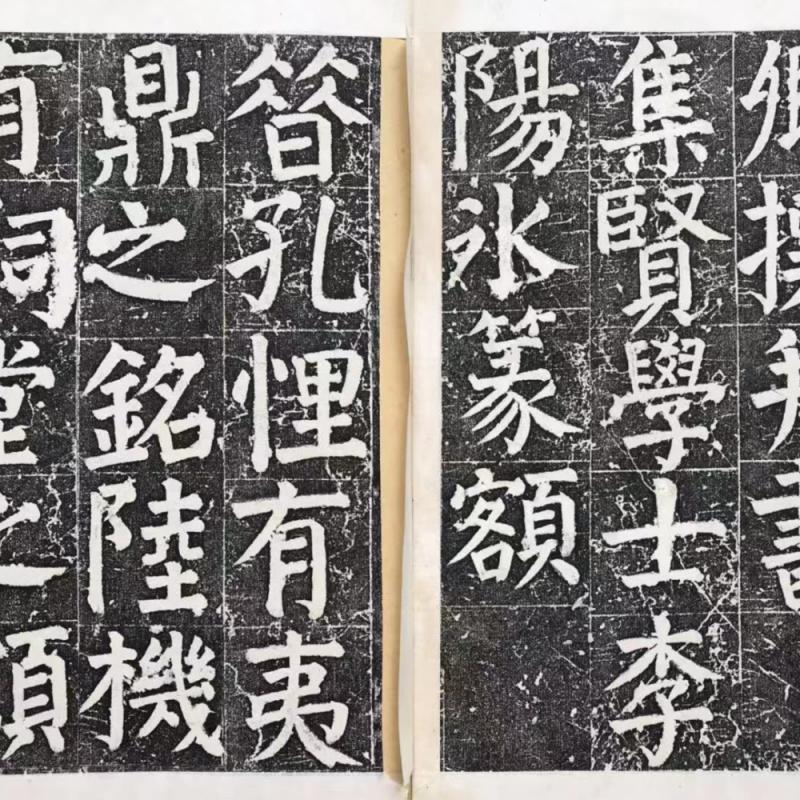 卿撰并書
集賢學士李
陽氷篆額
㫺孔悝有夷
鼎之銘陸機
有祠堂之頌